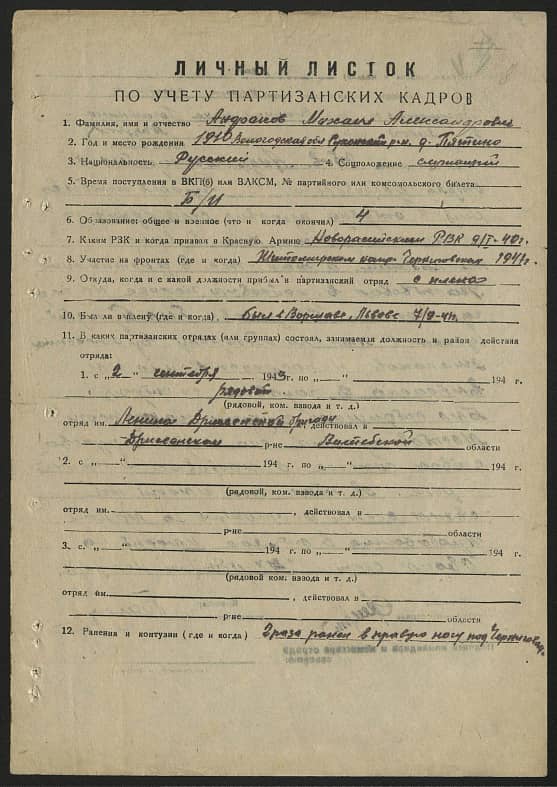 ЛИЧНЫЙ ЛИСТОК
ПО УЧЕТУ ПАРТИЗАНСКИХ КАДРОВ
1. Фамилия, имя и отчество Андронов Михаил Александрович
2. Год и место рождения 1910 Вологодская обл р-н. д. Пятино
3. Национальность Русский 4. Соцположение служащий
5. Время поступления в ВКП(б) или ВЛКСМ, № партийного или комсомольского билета
Б/П
6. Образование: общее и военное (что и когда окончил) 4
7. Каким РЗК и когда призван в Красную Армию Новоросийским РВК 9/I-40г.
8. Участие на фронтах (где и когда) Житомирском 1941г
9. Откуда, когда и с какой должности прибыл в партизанский отряд с плена
10. Был ли в плену (где и когда) был в Варшаве, Львове 7/9-41г.
11. В каких партизанских отрядах (или группах) состоял, занимаемая должность и район действия
отряда:
1. с „2“ сентября 1943 г. по „ “ 194 г.
рядовой
(рядовой, ком. взвода и т. д.)
отряд им. Ленина Дриссенской бригады, действовал в
Дриссенском р-не Витебской области
2. с „ “ 194 г. по „ “ 194 г.
(рядовой, ком. взвода и т. д.)
отряд им. , действовал в
р-не области
3. с. „ “ 194 г. по „ “ 194 г.
(рядовой ком. взвода и т. д.)
отряд им. , действовал в
р-не области
12. Ранения и контузии (где и когда) 2 раза ранен в правую ногу под Черниговом